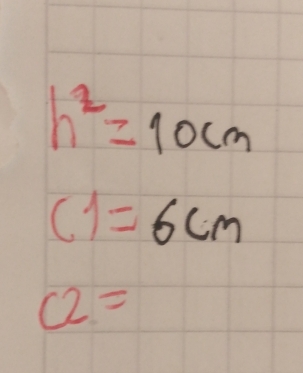 h² = 10cm
C1 = 6cm
C2 =